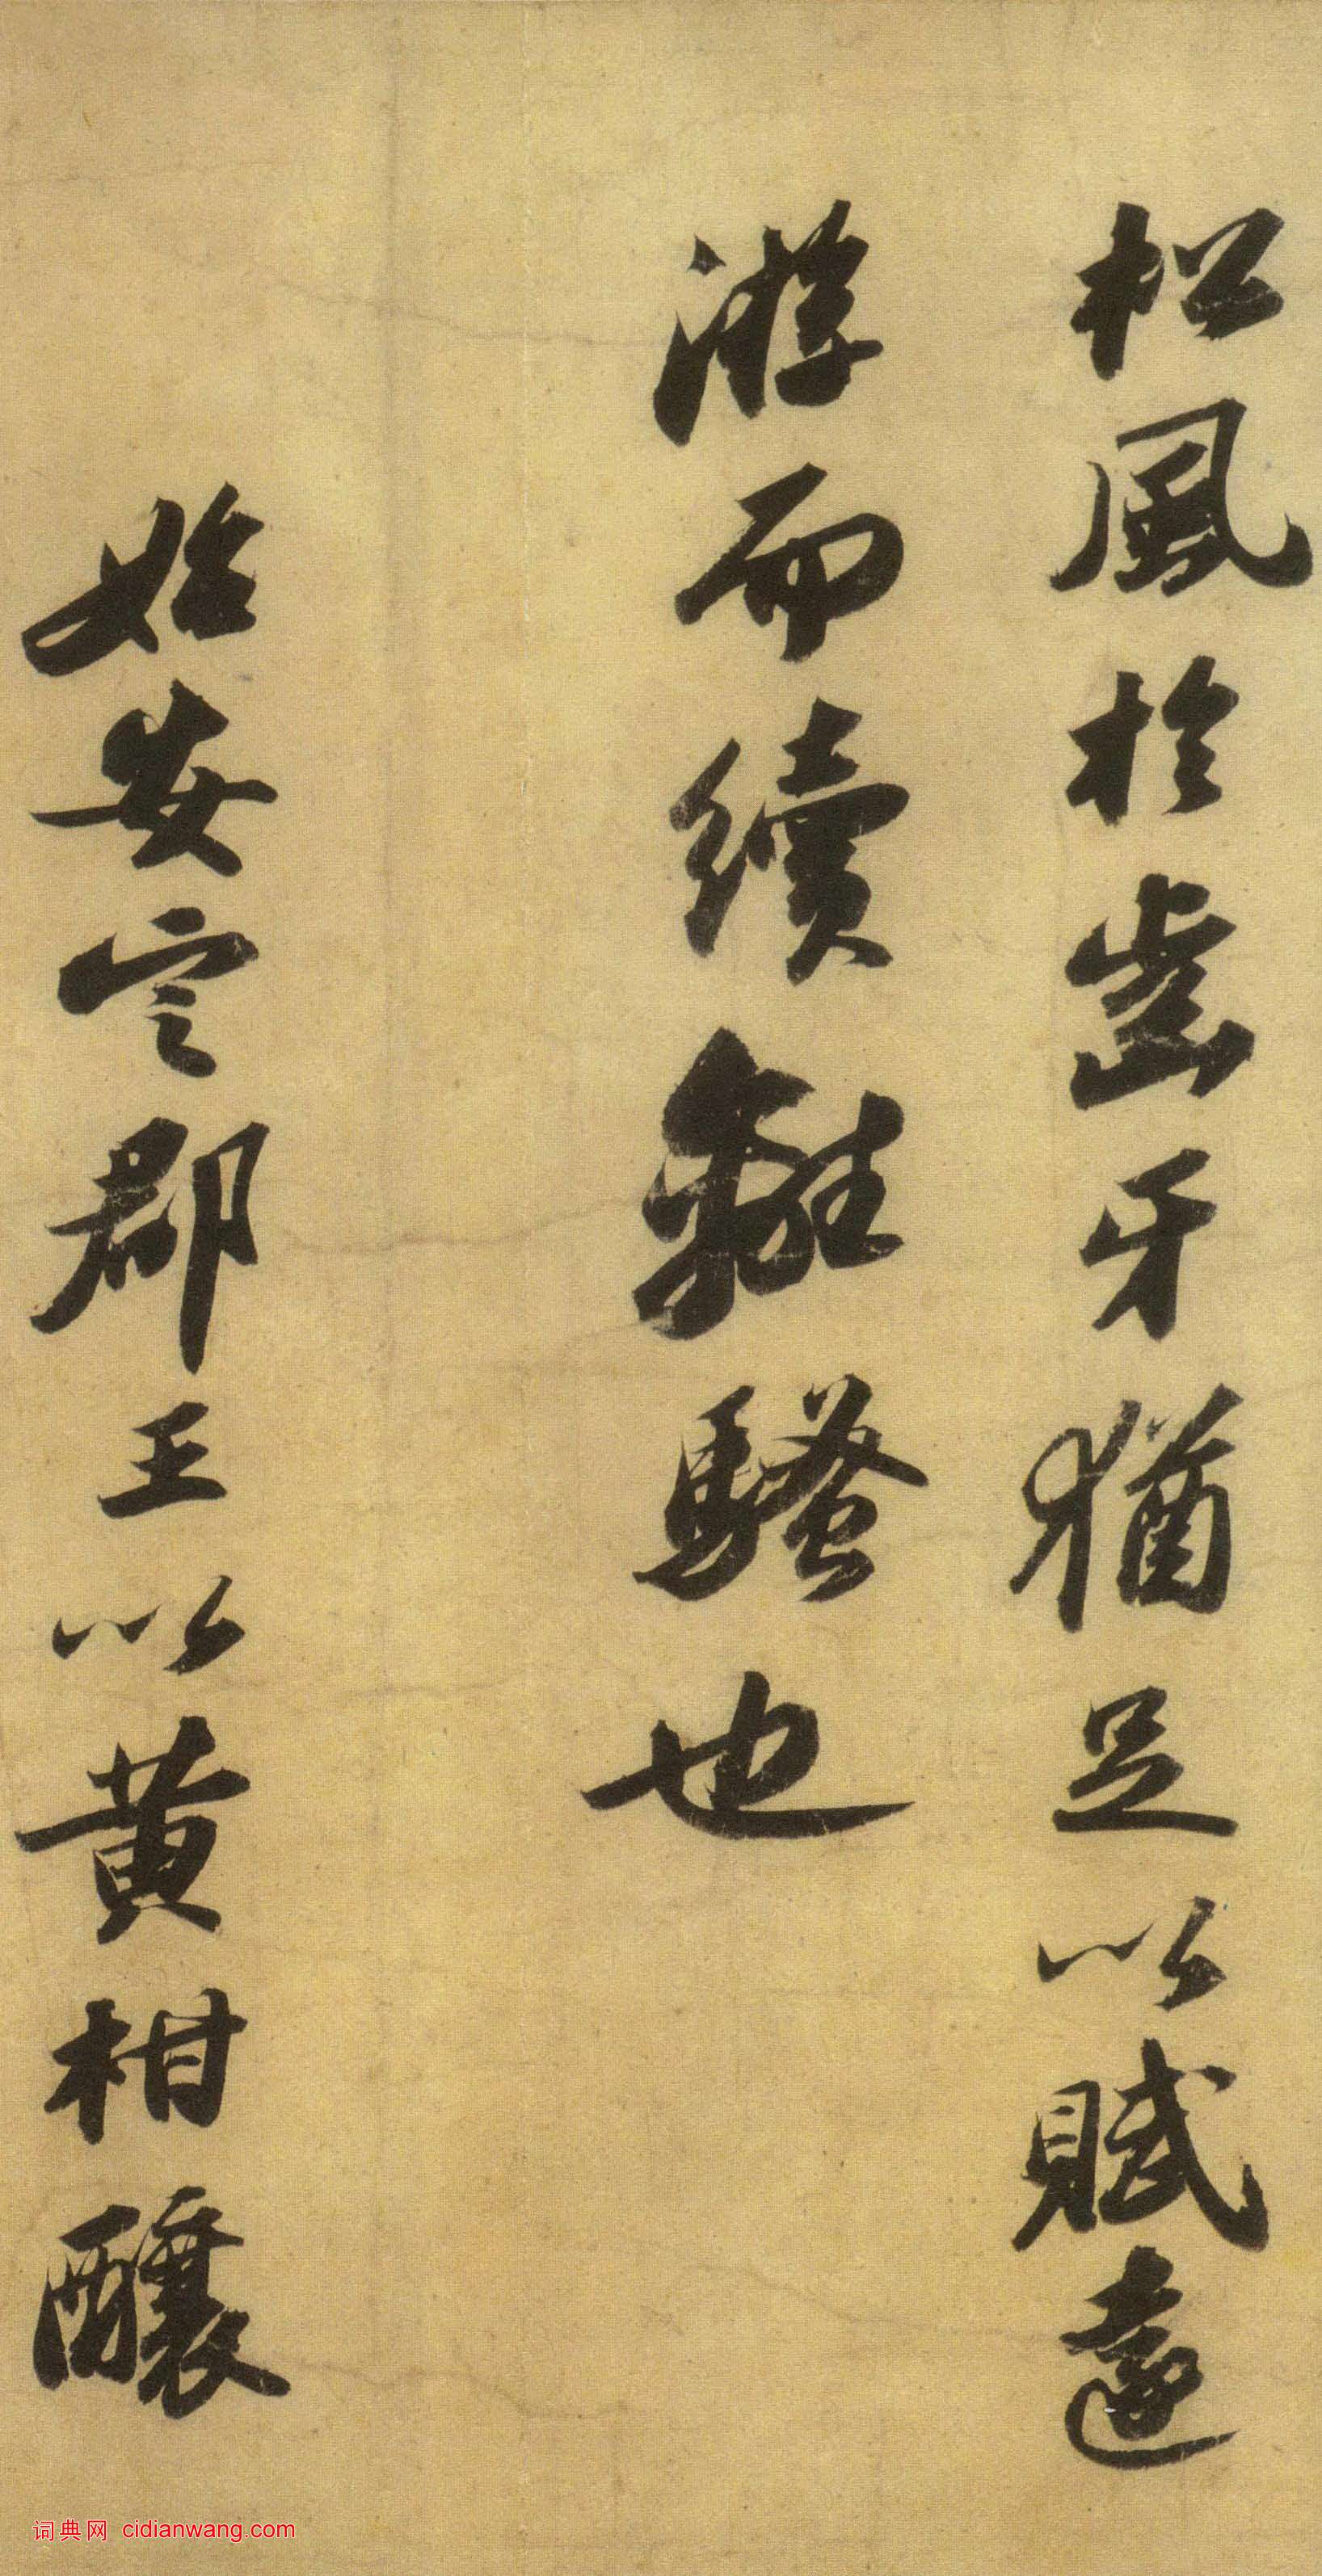 松風於齒牙猶足以賦遠
游而續離騷也
始安定郡王以黄柑釀
词典网 cidianwang.com